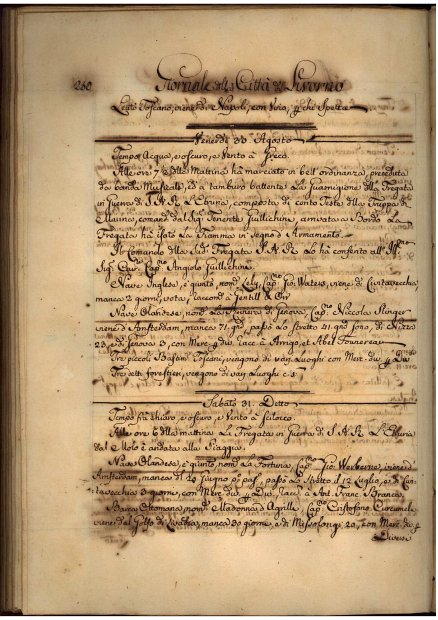 260 Giornale della Città di Livorno
Leuto Toscano, viene di Napoli, con Vino, p chi Spetta
Venerdì 30. Agosto
Tempo Acqua, e oscuro, e Vento a Greco
Alle ore 7 2 della Mattina hà marciato in bell'ordinanza, preceduta
da banda Musicale, ed a tamburo battente La Guarnigione della Fregata
in Guerra di S.A.R. L'Etruria, composta di cento Teste della Truppa di
Marina, comand. dal Sig. Tenente Guillichini, arrivata a Bordo La
Fregata hà issato La Fiamma in segno d'Armamento
Il Comando della Sud. Fregata S.A.R. Lo hà conferito all'
Sig. Cap.no Angiolo Guillichini
Nave Inglese, è giunto, nom. Lely, Cap.no Gio: Waters, viene di Civitavecchia
manca 2 giorni, vota, racc. a Gentill & Orr
Nave Olandese, nom. La Riviera di Genova, Cap.no Niccola Slinger
viene d'Amsterdam, manca 71. gno, passò Lo Stretto 21. gno sono, di Nizza
23, e di Genova 3, con Merc. p div. racc. a Arrigo, et Abel Fonnereau
Tre piccoli Bastim. Toscani, vengono di vari Luoghi con Merc. div. p div.
Tre detti forestieri, vengono di vari Luoghi c. S.
Sabato 31. Detto
Tempo frà chiaro, e oscuro, e Vento a Scilocco
Alle ore 6 della mattina La Fregata in Guerra di S.A.R. L'Etruria
dal Molo è andata alla Spiaggia
Nave Olandese, è giunto, nom. La Fortuna, Cap.no Gio: viene d'
Amsterdam, manca di 29 Giugno p. pas. passò Lo Stretto il 12 Luglio, e di Civi
tavecchia 3 giorni, con Merc. div. p Div. racc. a Ant. Franc. Branca
Barca Ottomana, nom. Madonna d'Agrilli, Cap. Cristofano Curcumeli
viene dal Golfo di manca 30 giorni, e di Missolongi 20, con Merc. div. p
Diversi